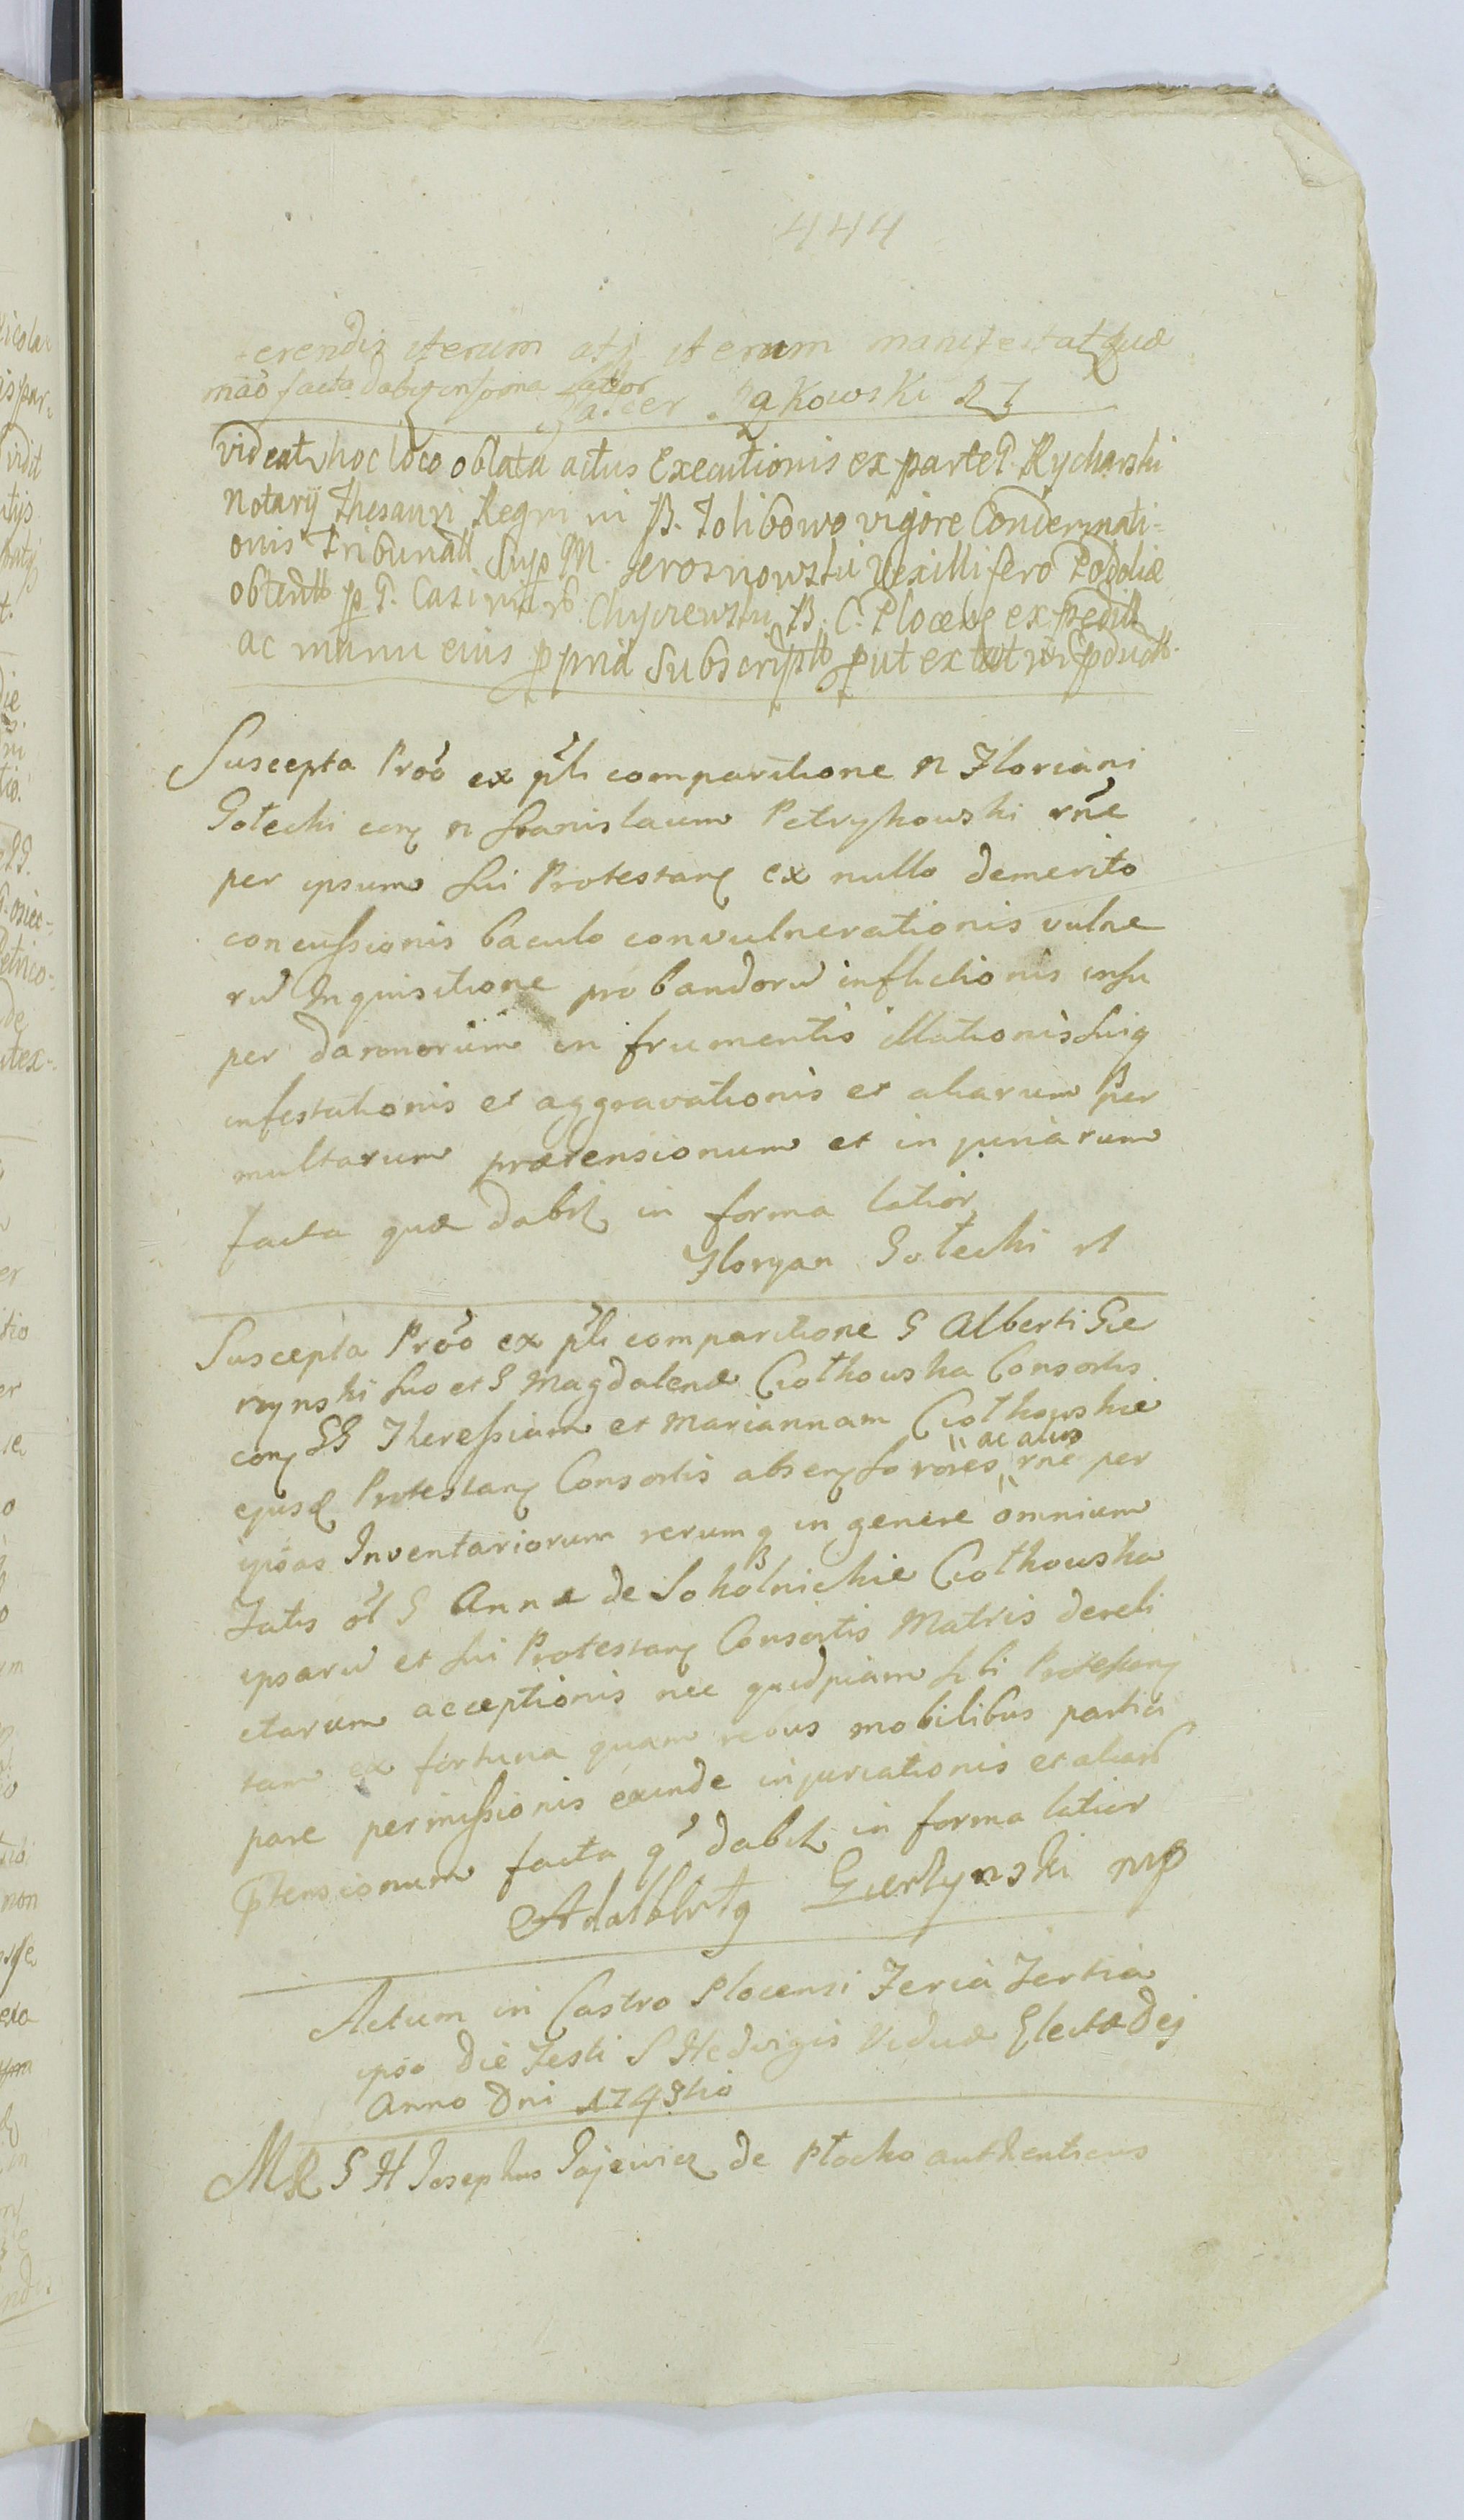 444
iterum atq iterum manifestat quæ
mão facta dabit in forma latior
Zakowski
videat hoc loco oblata actus Executionis ex parte P. Rycharski
Notarÿ Thesauri Regni in B. Tolibowo vigore Condemnati-
onis Tribunall Sup M. Vexillifero Podoliæ
obtentt p P. Casimir B. C. Plocen expeditt
ac manu eius ppria Subscriptt put extat in pduct.
Suscepta Prõo ex pñli comparitione n Floriani
Gołecki con n Stanislaum Petrykowski rñe
per ipsum sui Protestan ex nullo demerito
concussionis baculo convulnerationis vulne
rũ Inquisitione probandorũ inflictionis insu
per damnorum in frumentis illationis suiq
infestationis et aggravationis et aliarum per
multarum prætensionum et injuriarum
facta quæ dabit in forma latior
Floryan Gołecki
Suscepta Prõo ex pñli comparitione G Alberti Gie
rzynski suo et G Magdalenæ Ciołkowska Consortis
con GG Theressiam et Mariannam Ciołkowskie
ejusd Protestan Consortis absen sorores ac alias rñe per
ipsas Inventariorum rerumq in genere omnium
Fatis ol G Annæ de Sokolnickie Ciołkowska
ipsarũ et sui Protestan Consortis Matris dereli
ctarum acceptionis nec quidpiam sibi Protestan
tam ex fortuna quam rebus mobilibus partici
pare permissionis exinde injuriationis et aliarũ
Ptensionum facta q dabit in forma latior
Adalbertg Gierzynski mp
Actum in Castro Plocensi Feria Tertia
ipso die Festi S Hedvigis Viduæ Electæ Dej
Anno Dni 1743tio
MR G H Josephus Gajewicz de Płocko authenticus